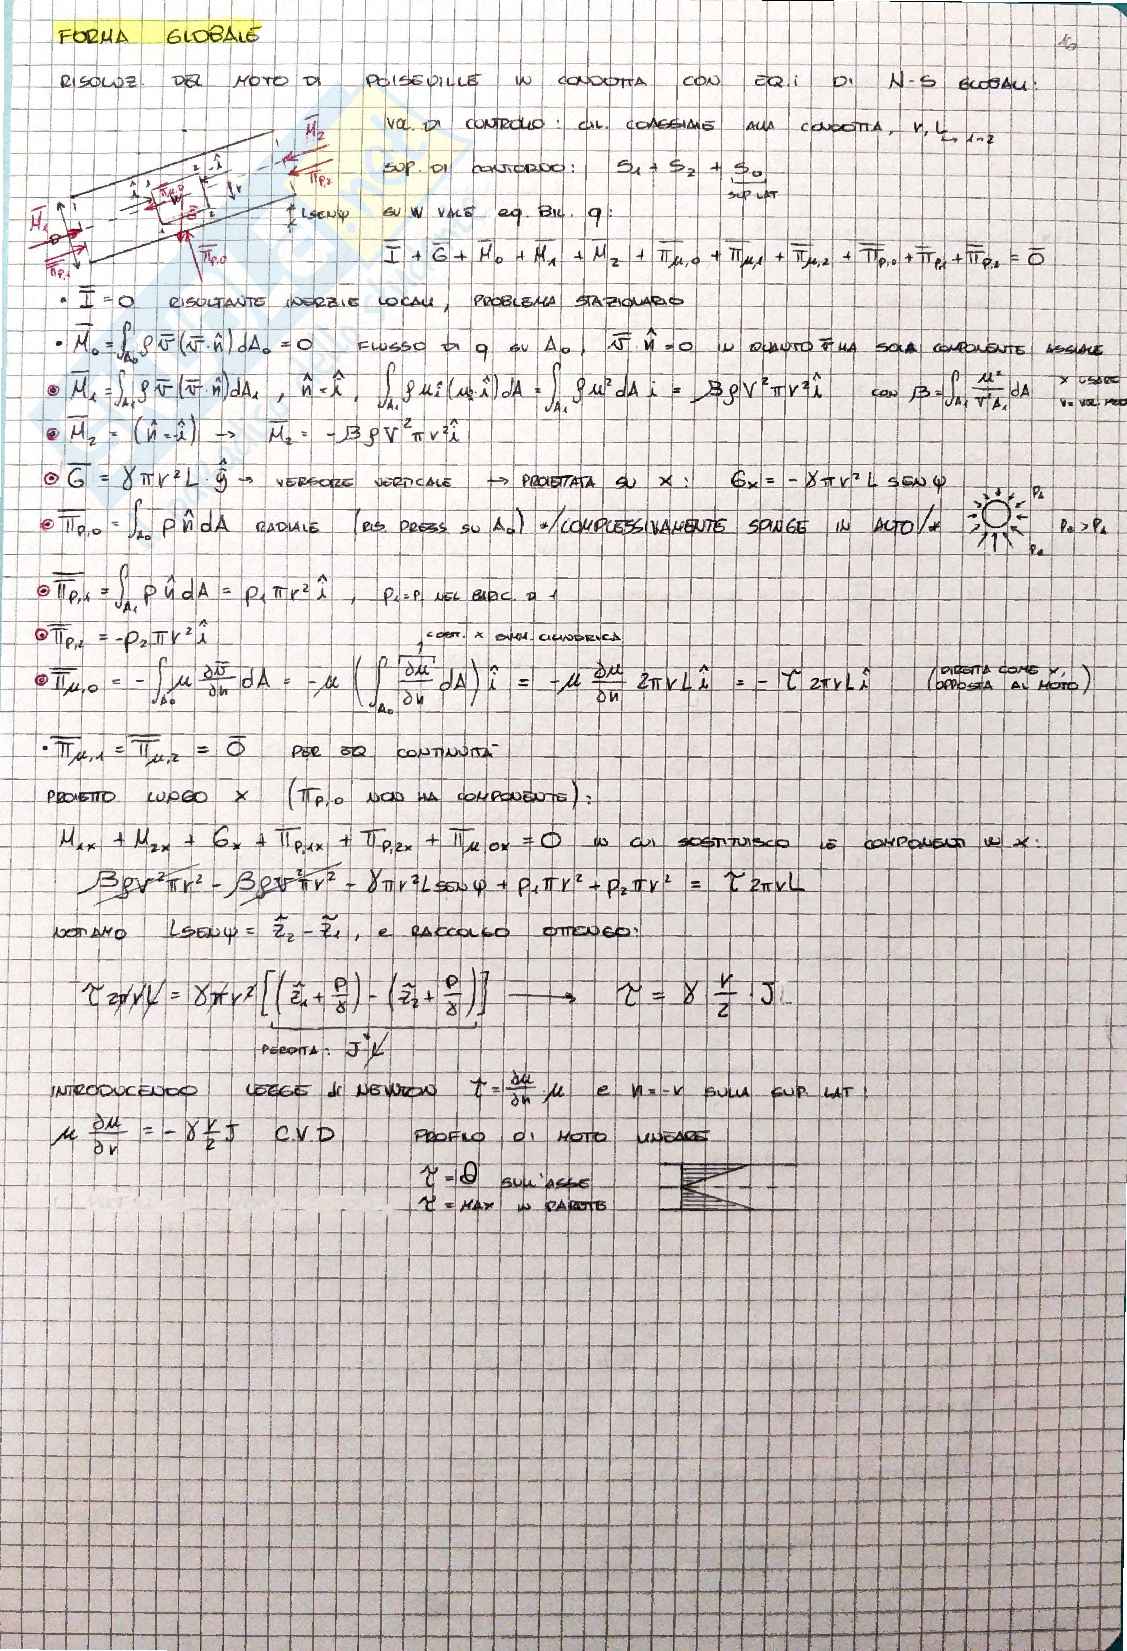 FORMA GLOBALE
RISOLUZ. DEL MOTO DI POISEVILLE IN CONDOTTA CON EQ.i DI N-S GLOBALI:
VOL. DI CONTROLLO: CIL. COASSIALE ALLA CONDOTTA, r, L 1-2
SUP. DI CONTORNO: S₁ + S₂ + S₀
SUP LAT
LSENψ SU W VALE eq. BIL. q:
Ī + Ḡ + M̄₀ + M̄₁ + M̄₂ + Π̄μ,0 + Π̄μ,1 + Π̄μ,2 + Π̄p,0 + Π̄p,1 + Π̄p,2 = 0̄
• Ī = 0 RISULTANTE INERZIE LOCALI, PROBLEMA STAZIONARIO
• M̄₀ = ∫A₀ ρ v̄ (v̄·n̂) dA₀ = 0 FLUSSO DI q SU A₀, v̄·n̂ = 0 IN QUANTO v̄ HA SOLA COMPONENTE ASSIALE
• M̄₁ = ∫A₁ ρ v̄ (v̄·n̂) dA₁, n̂ = î, ∫A₁ ρ u î (u î·î) dA = ∫A₁ ρ u² dA i = βρV²πr² î CON β = ∫A₁ u²/V²A₁ dA X USARE
V = VEL MED
• M̄₂ = (n̂ = -î) → M̄₂ = -βρV²πr² î
• Ḡ = γπr²L · ĝ → VERSORE VERTICALE → PROIETTATA SU X: Gx = -γπr²L SENψ
• Π̄p,0 = ∫A₀ p n̂ dA RADIALE (RIS. PRESS SU A₀) */COMPLESSIVAMENTE SPINGE IN ALTO/*
• Π̄p,1 = ∫A₁ p n̂ dA = p₁πr² î, p₁ = p NEL BARIC. DI 1
• Π̄p,2 = -p₂πr² î
COST. X SIMM. CILINDRICA
• Π̄μ,0 = -∫A₀ μ ∂v̄/∂n dA = -μ (∫A₀ ∂u/∂n dA) î = -μ ∂u/∂n 2πrL î = -τ 2πrL î (DIRETTA COME X, OPPOSTA AL MOTO)
• Π̄μ,1 = Π̄μ,2 = 0̄ PER EQ CONTINUITÀ
PROIETTO LUNGO X (Πp,0 NON HA COMPONENTE):
M₁x + M₂x + Gx + Πp,1x + Πp,2x + Πμ,0x = 0 IN CUI SOSTITUISCO LE COMPONENTI IN X:
βρV²πr² - βρV²πr² - γπr²L SENψ + p₁πr² + p₂πr² = τ 2πrL
NOTIAMO LSENψ = ẑ₂ - ẑ₁, E RACCOLGO OTTENGO:
τ2πrL = γπr² [(ẑ₁ + p/γ) - (ẑ₂ + p/γ)] → τ = γ r/2 · J
PERDITA: J*L
INTRODUCENDO LEGGE di NEWTON τ = ∂u/∂n μ E n = -r SULLA SUP. LAT:
μ ∂u/∂r = -γ r/2 J C.V.D PROFILO DI MOTO LINEARE
τ = 0 SULL'ASSE
τ = MAX IN PARETE